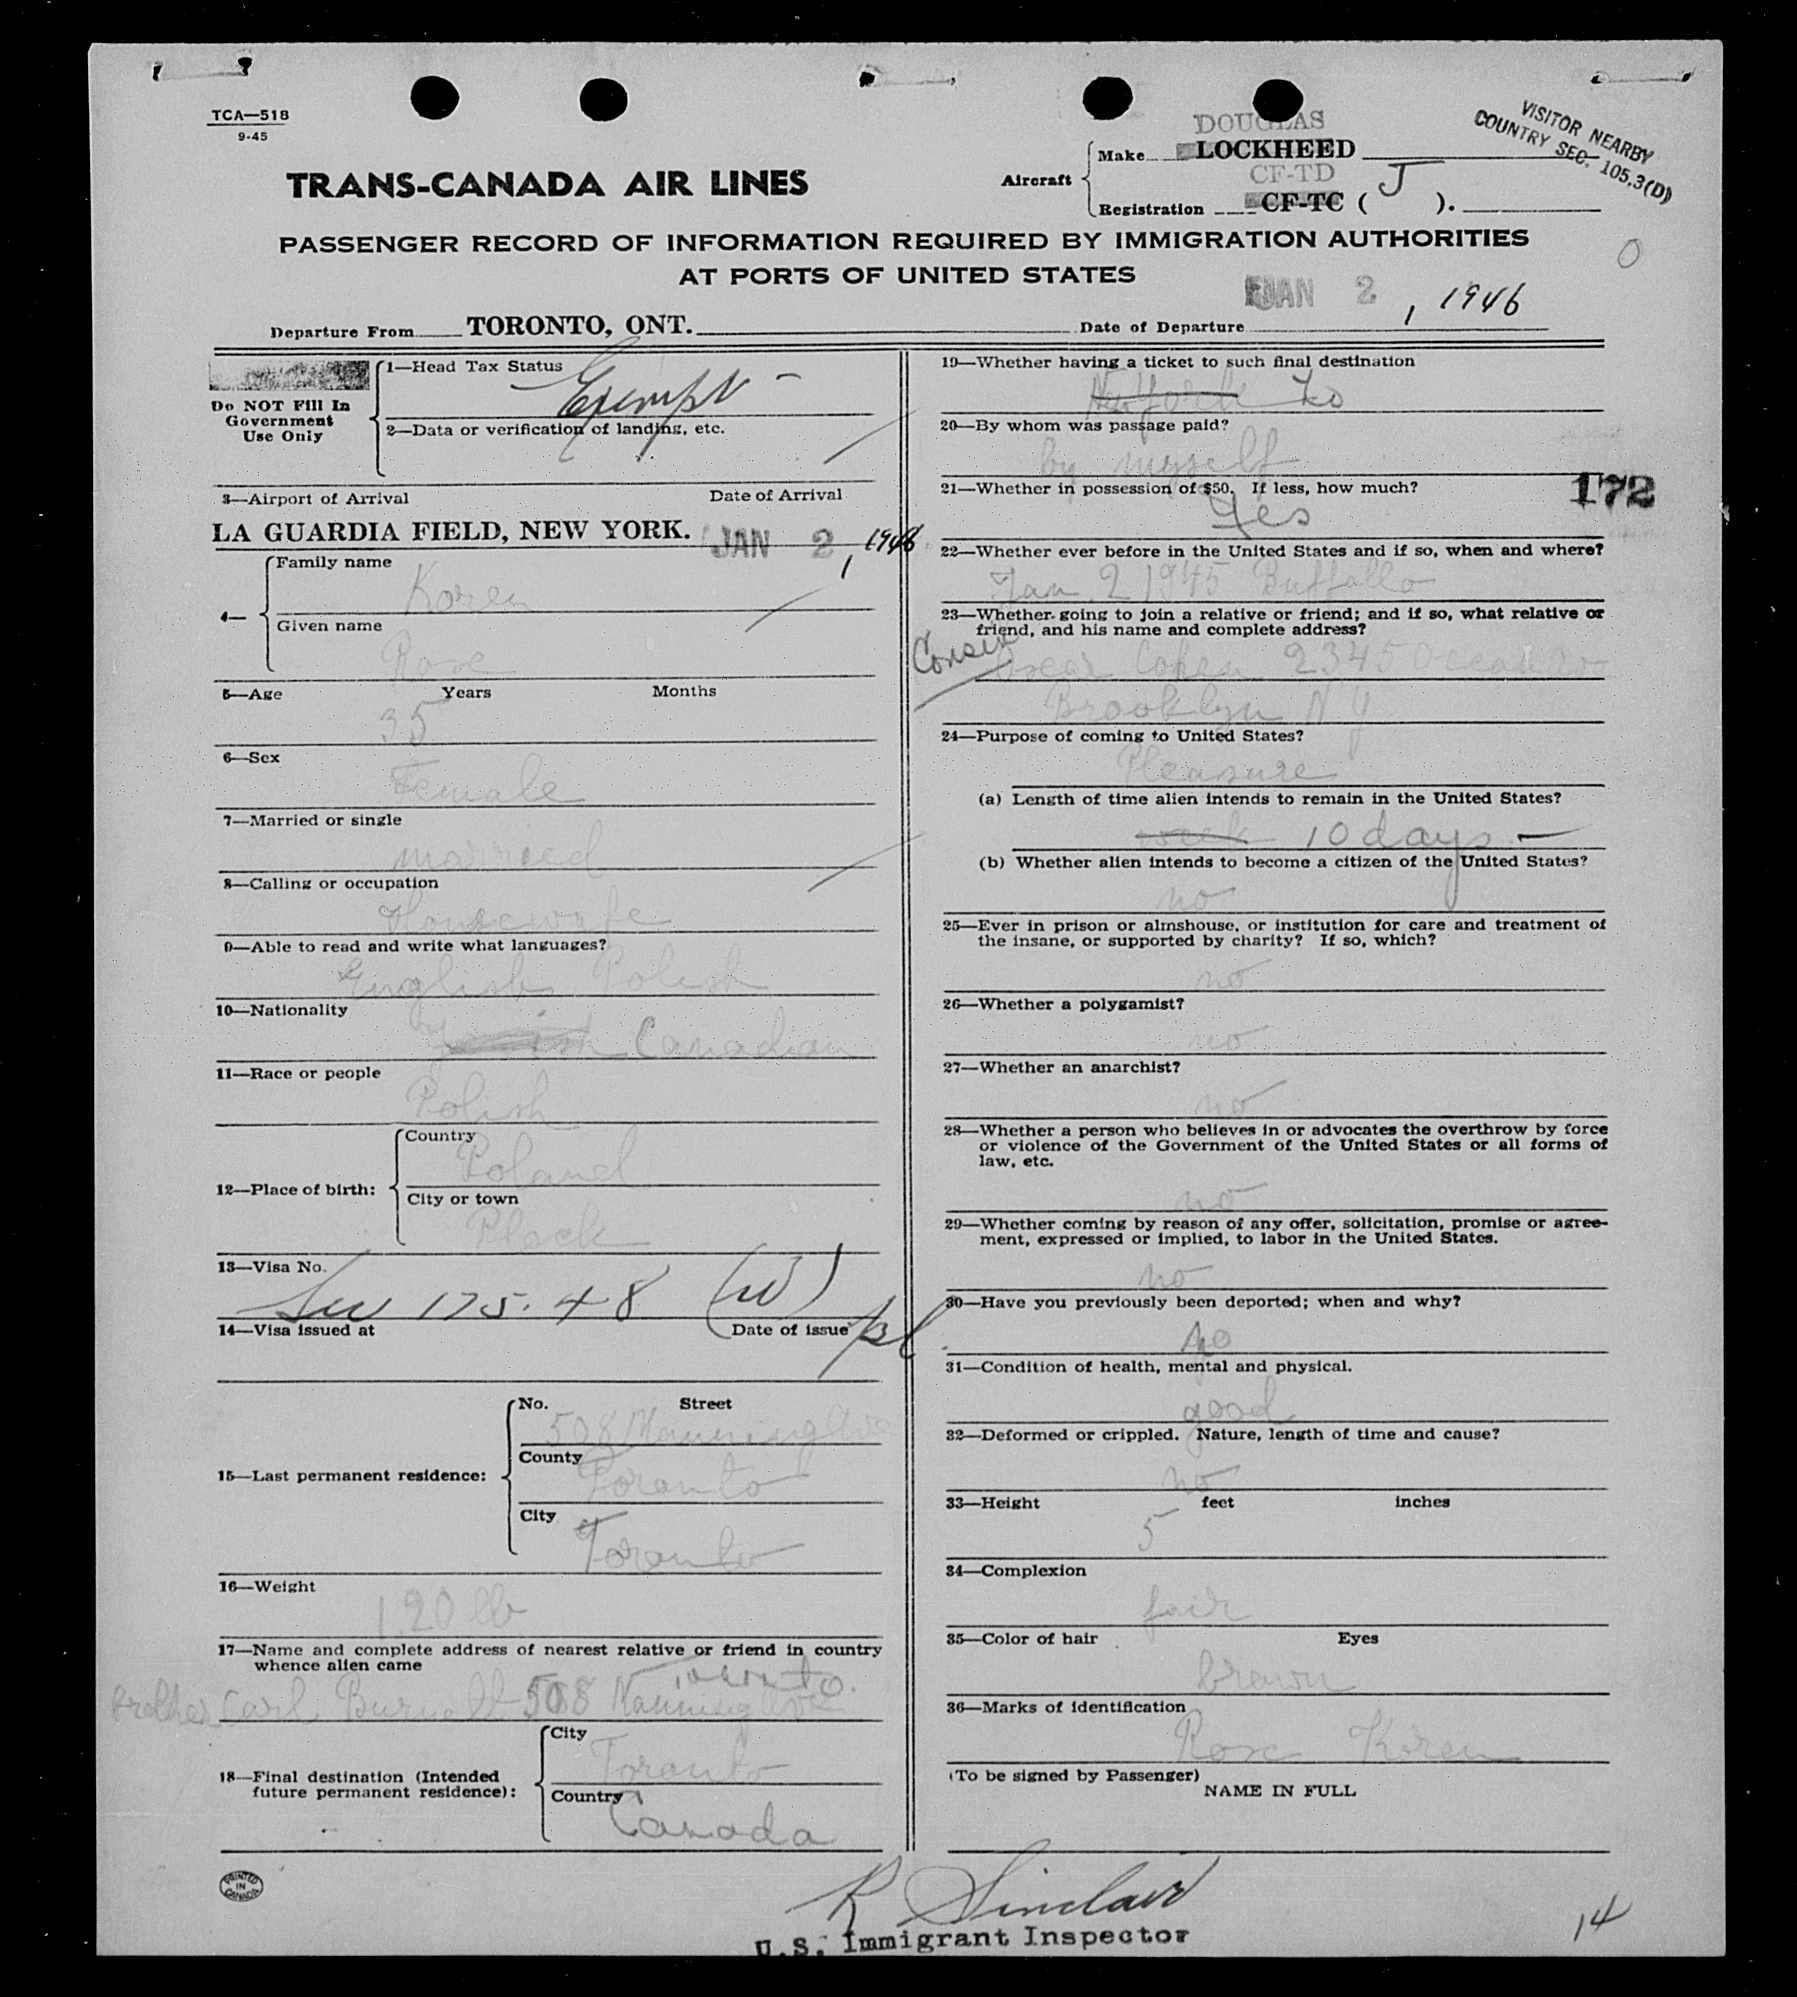 TCA—518
9-45
TRANS-CANADA AIR LINES
Aircraft
DOUGLAS
Make LOCKHEED
CF-TD
Registration CF-TC ( J ).
VISITOR NEARBY
COUNTRY SEC. 105.3(D)
PASSENGER RECORD OF INFORMATION REQUIRED BY IMMIGRATION AUTHORITIES
AT PORTS OF UNITED STATES
0
Departure From TORONTO, ONT.
Date of Departure JAN 2, 1946
Do NOT Fill In
Government
Use Only
1—Head Tax Status
Exempt
2—Data or verification of landing, etc.
3—Airport of Arrival Date of Arrival
LA GUARDIA FIELD, NEW YORK. JAN 2, 1946
4—
Family name
Koren
Given name
Rose
5—Age Years Months
35
6—Sex
Female
7—Married or single
married
8—Calling or occupation
Housewife
9—Able to read and write what languages?
English Polish
10—Nationality
Canadian
11—Race or people
Polish
12—Place of birth:
Country
Poland
City or town
Plock
13—Visa No.
Sec 175.48 (W)
14—Visa issued at Date of issue
15—Last permanent residence:
No. Street
508 Manning Ave
County
Toronto
City
Toronto
16—Weight
120 lb
17—Name and complete address of nearest relative or friend in country
whence alien came
Toronto.
Brother Carl 508 Manning Ave
18—Final destination (Intended
future permanent residence):
City
Toronto
Country
Canada
PRINTED
IN
CANADA
19—Whether having a ticket to such final destination
New York to
20—By whom was passage paid?
by myself
21—Whether in possession of $50. If less, how much?
Yes
172
22—Whether ever before in the United States and if so, when and where?
Jan 2 1945 Buffallo
23—Whether going to join a relative or friend; and if so, what relative or
friend, and his name and complete address?
Cousin
Oscar Cohen 2345 Ocean
Brooklyn N Y
24—Purpose of coming to United States?
Pleasure
(a) Length of time alien intends to remain in the United States?
week 10 days
(b) Whether alien intends to become a citizen of the United States?
no
25—Ever in prison or almshouse, or institution for care and treatment of
the insane, or supported by charity? If so, which?
no
26—Whether a polygamist?
no
27—Whether an anarchist?
no
28—Whether a person who believes in or advocates the overthrow by force
or violence of the Government of the United States or all forms of
law, etc.
no
29—Whether coming by reason of any offer, solicitation, promise or agree-
ment, expressed or implied, to labor in the United States.
no
30—Have you previously been deported; when and why?
no
31—Condition of health, mental and physical.
good
32—Deformed or crippled. Nature, length of time and cause?
no
33—Height feet inches
5
34—Complexion
fair
35—Color of hair Eyes
brown
36—Marks of identification
Rose Koren
(To be signed by Passenger)
NAME IN FULL
R Sinclair
U.S. Immigrant Inspector
14